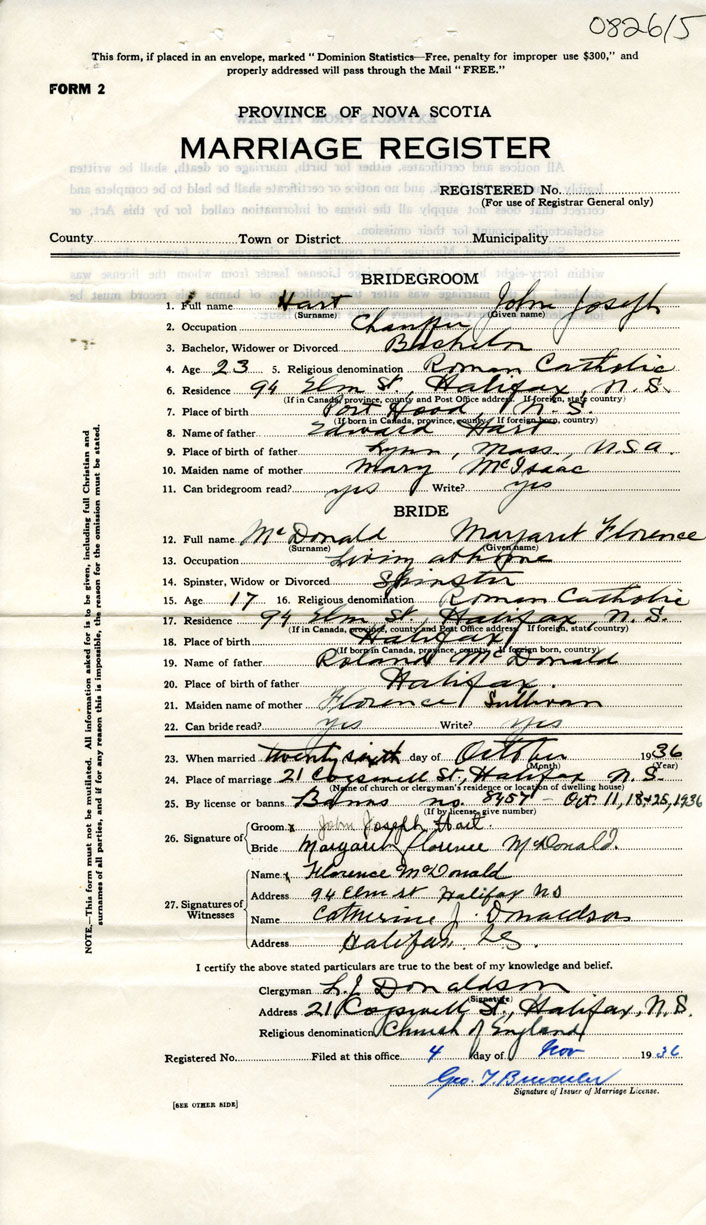 082615
This form, if placed in an envelope, marked "Dominion Statistics—Free, penalty for improper use $300," and
properly addressed will pass through the Mail "FREE."
FORM 2
PROVINCE OF NOVA SCOTIA
MARRIAGE REGISTER
REGISTERED No.
(For use of Registrar General only)
County Town or District Municipality
BRIDEGROOM
1. Full name Hart John Joseph
(Surname) (Given name)
2. Occupation Chauffer
3. Bachelor, Widower or Divorced Bachelor
4. Age 23 5. Religious denomination Roman Catholic
6. Residence 94 Elm St., Halifax, N.S.
(If in Canada, province, county and Post Office address. If foreign, state country)
7. Place of birth Port Hood, N.S.
(If born in Canada, province, county. If foreign born, country)
8. Name of father Edward Hart
9. Place of birth of father Lynn, Mass., U.S.A.
10. Maiden name of mother Mary McIsaac
11. Can bridegroom read? yes Write? yes
BRIDE
12. Full name McDonald Margaret Florence
(Surname) (Given name)
13. Occupation Living at home
14. Spinster, Widow or Divorced Spinster
15. Age 17 16. Religious denomination Roman Catholic
17. Residence 94 Elm St., Halifax, N.S.
(If in Canada, province, county and Post Office address. If foreign, state country)
18. Place of birth Halifax
(If born in Canada, province, county. If foreign born, country)
19. Name of father Roland McDonald
20. Place of birth of father Halifax.
21. Maiden name of mother Florence Sullivan
22. Can bride read? yes Write? yes
23. When married twenty sixth day of October 1936
(Month) (Year)
24. Place of marriage 21 Cogswell St., Halifax N.S.
(Name of church or clergyman's residence or location of dwelling house)
25. By license or banns Banns no. 8957 - Oct 11, 18+25, 1936
(If by license, give number)
26. Signature of
Groom x John Joseph Hart.
Bride Margaret Florence McDonald.
27. Signatures of Witnesses
Name x Florence McDonald
Address 94 Elm st Halifax NS
Name Catherine J. Donaldson
Address Halifax, N.S.
I certify the above stated particulars are true to the best of my knowledge and belief.
Clergyman L.J. Donaldson
(Signature)
Address 21 Cogswell St., Halifax, N.S.
Religious denomination Church of England
Registered No. Filed at this office 4 day of Nov 1936
Geo.
Signature of Issuer of Marriage License.
[SEE OTHER SIDE]
NOTE.—This form must not be mutilated. All information asked for is to be given, including full Christian and
surnames of all parties, and if for any reason this is impossible, the reason for the omission must be stated.